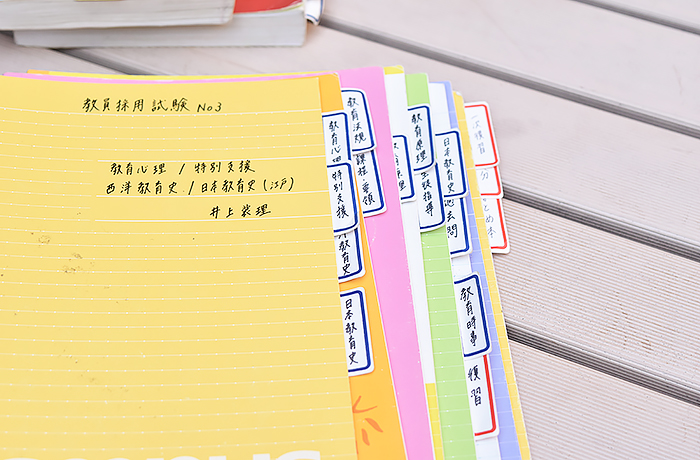 教員採用試験 No3
教育心理 / 特別支援
西洋教育史 / 日本教育史 (江戸)
井上
教育心理
特別支援
洋教育史
日本教育史
教育法規
課程
要領
教育原理
生徒指導
日本教育史
過去問
教育時事
復習
一次復習
分
とめ本